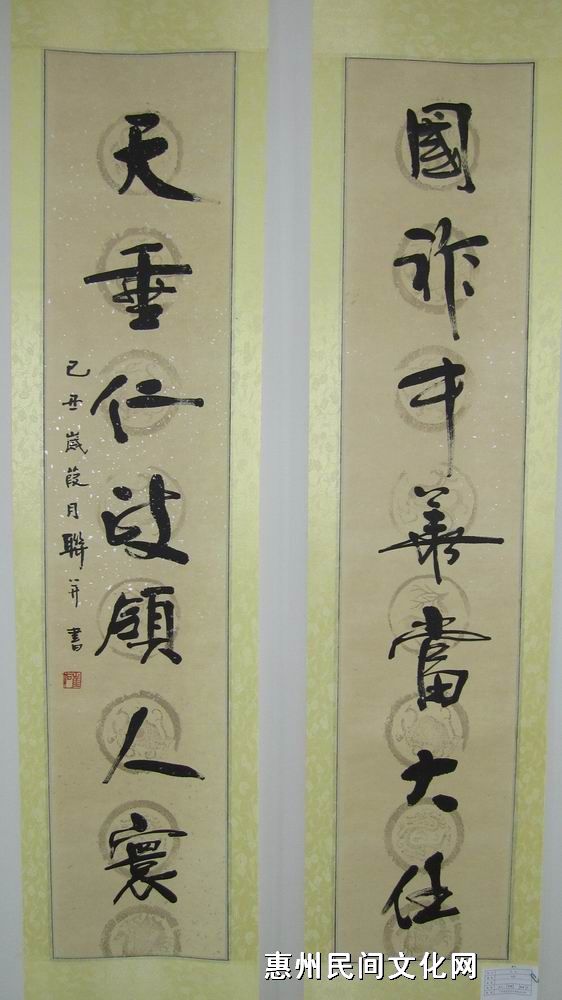 國祚中華當大任
天垂仁政領人寰
己丑歲葭月聯并書
惠州民间文化网